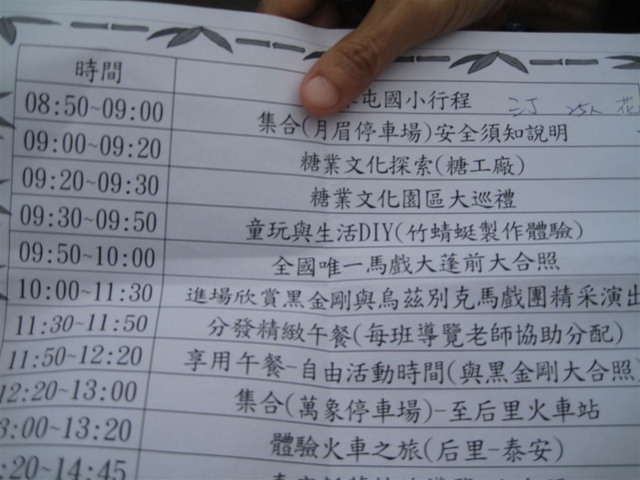 時間 屯國小行程
08:50~09:00 集合(月眉停車場)安全須知說明
09:00~09:20 糖業文化探索(糖工廠)
09:20~09:30 糖業文化園區大巡禮
09:30~09:50 童玩與生活DIY(竹蜻蜓製作體驗)
09:50~10:00 全國唯一馬戲大蓬前大合照
10:00~11:30 進場欣賞黑金剛與烏茲別克馬戲團精采演出
11:30~11:50 分發精緻午餐(每班導覽老師協助分配)
11:50~12:20 享用午餐-自由活動時間(與黑金剛大合照
12:20~13:00 集合(萬象停車場)-至后里火車站
3:00~13:20 體驗火車之旅(后里-泰安)
:20~14:45